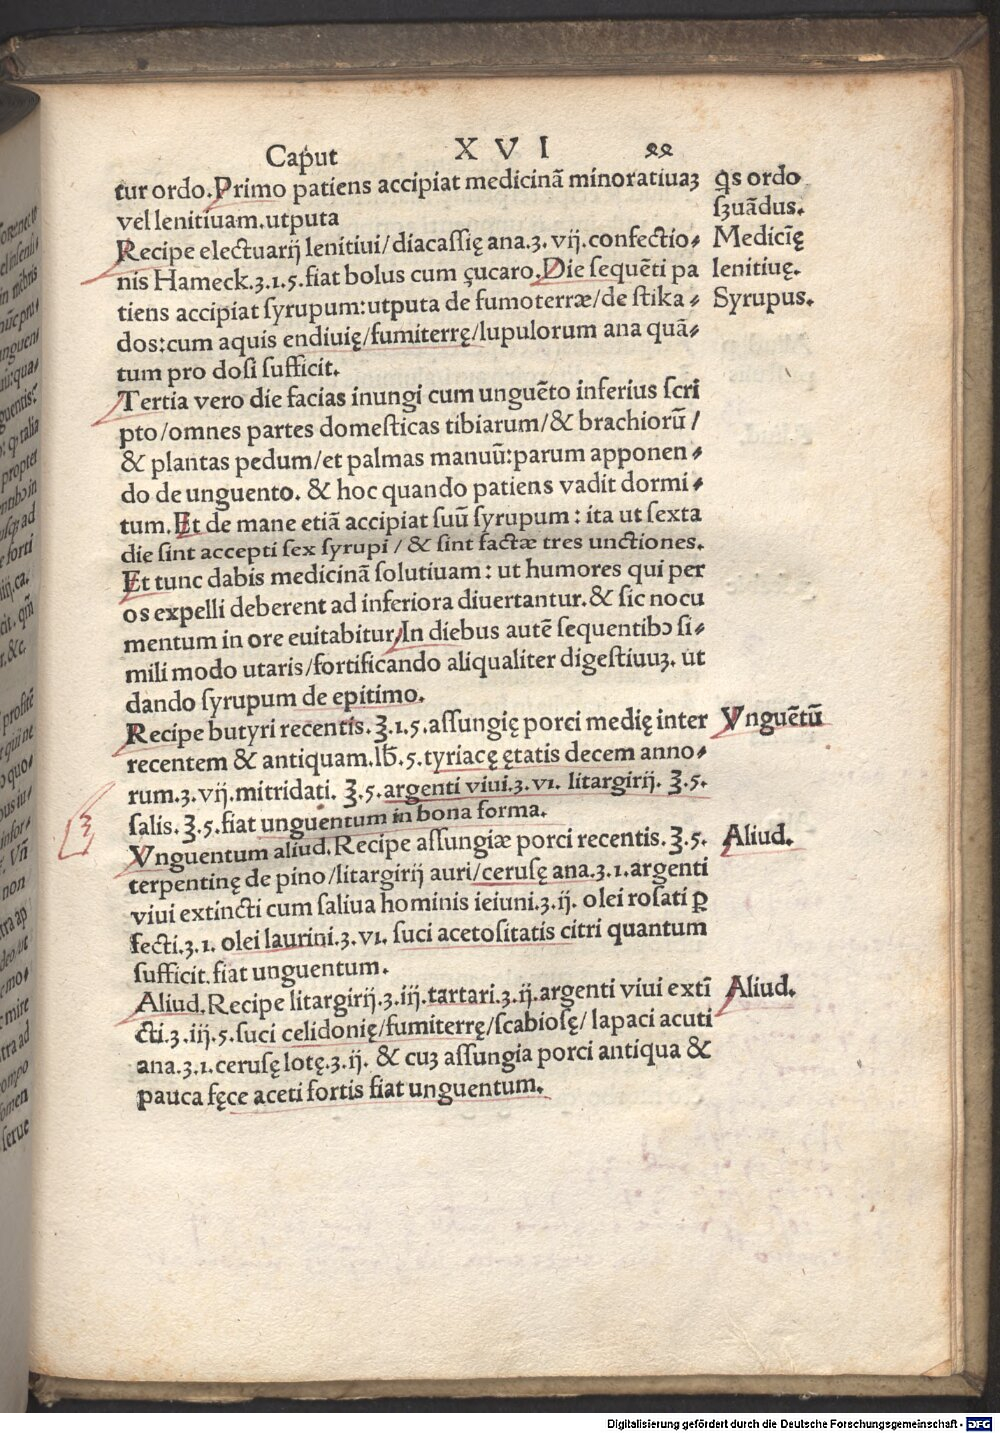 Caput XVI
tur ordo. Primo patiens accipiat medicinā minoratiuaꝫ
vel lenitiuam. utputa
Recipe electuarij lenitiui/diacassię ana.ʒ.vij.confectio⸗
nis Hameck.ʒ.1.5.fiat bolus cum çucaro. Die sequēti pa
tiens accipiat syrupum: utputa de fumoterræ/de stika⸗
dos: cum aquis endiuię/fumiterrę/lupulorum ana quā⸗
tum pro dosi sufficit.
Tertia vero die facias inungi cum unguēto inferius scri
pto/omnes partes domesticas tibiarum/& brachiorū/
& plantas pedum/et palmas manuū: parum apponen⸗
do de unguento. & hoc quando patiens vadit dormi⸗
tum. Et de mane etiā accipiat suū syrupum: ita ut sexta
die sint accepti sex syrupi/& sint factæ tres unctiones.
Et tunc dabis medicinā solutiuam: ut humores qui per
os expelli deberent ad inferiora diuertantur. & sic nocu
mentum in ore euitabitur. In diebus autē sequentibꝰ si⸗
mili modo utaris/fortificando aliqualiter digestiuuꝫ. ut
dando syrupum de epitimo.
Recipe butyri recentis. ℥.1.5. assungię porci medię inter
recentem & antiquam. lb̄.5. tyriacę ętatis decem anno⸗
rum.ʒ.vij. mitridati. ℥.5. argenti viui.ʒ.vi. litargirij. ℥.5.
salis. ℥.5. fiat unguentum in bona forma.
Vnguentum aliud. Recipe assungiæ porci recentis. ℥.5.
terpentinę de pino/litargirij auri/cerusę ana.ʒ.1. argenti
viui extincti cum saliua hominis ieiuni.ʒ.ij. olei rosati ꝑ
fecti.ʒ.1. olei laurini.ʒ.vi. suci acetositatis citri quantum
sufficit. fiat unguentum.
Aliud. Recipe litargirij.ʒ.iij. tartari.ʒ.ij. argenti viui extī
cti.ʒ.iij.5. suci celidonię/fumiterrę/scabiosę/lapaci acuti
ana.ʒ.1. cerusę lotę.ʒ.ij. & cuꝫ assungia porci antiqua &
pauca fęce aceti fortis fiat unguentum.
q̄s ordo
ſʒuādus.
Mediciīę
lenitiuę.
Syrupus.
Vnguētū
Aliud.
Aliud.
Digitalisierung gefördert durch die Deutsche Forschungsgemeinschaft - DFG